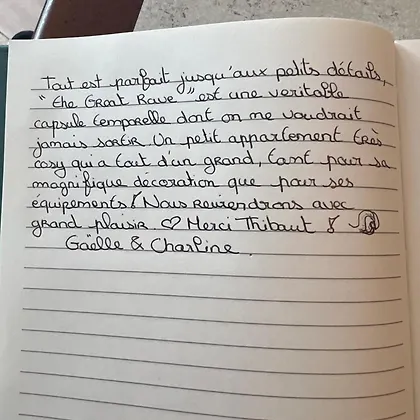 Tout est parfait jusqu'aux petits détails,
"the Great Rave" est une veritable
capsule temporelle dont on ne voudrait
jamais sortir. Un petit appartement très
cosy qui a tout d'un grand, tant pour sa
magnifique décoration que pour ses
équipements! Nous reviendrons avec
grand plaisir ♡ Merci Thibaut &
Gaëlle & Charline.